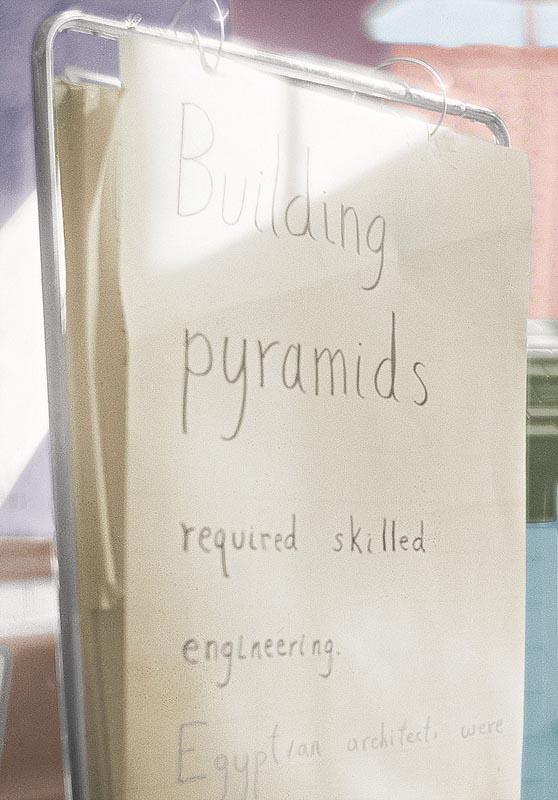 Building
pyramids
required skilled
engineering.
Egyptian architects were